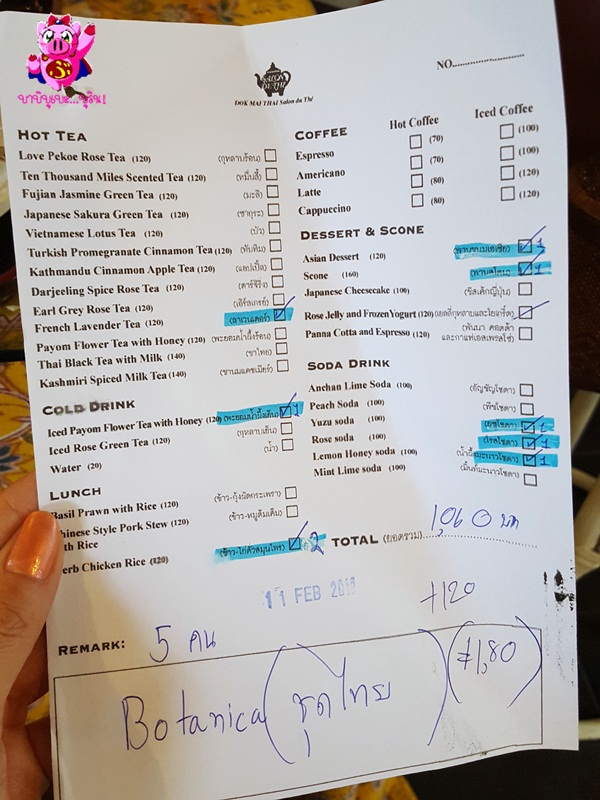 บาบิบูเบะ...บุลิน!
DOK MAI THAI Salon du Thé
NO.
HOT TEA
Love Pekoe Rose Tea (120) (กุหลาบร้อน)
Ten Thousand Miles Scented Tea (120) (หมื่นลี้)
Fujian Jasmine Green Tea (120) (มะลิ)
Japanese Sakura Green Tea (120) (ซากุระ)
Vietnamese Lotus Tea (120) (บัว)
Turkish Promegranate Cinnamon Tea (120) (ทับทิม)
Kathmandu Cinnamon Apple Tea (120) (แอปเปิ้ล)
Darjeeling Spice Rose Tea (120) (ดาร์จีริ่ง)
Earl Grey Rose Tea (120) (เอิร์ลเกรย์)
French Lavender Tea (120) (ลาเวนเดอร์)
Payom Flower Tea with Honey (120) (พะยอมน้ำผึ้งร้อน)
Thai Black Tea with Milk (140) (ชาไทย)
Kashmiri Spiced Milk Tea (140) (ชานมแคชเมียร์)
COLD DRINK
Iced Payom Flower Tea with Honey (120) (พะยอมน้ำผึ้งเย็น) 1
Iced Rose Green Tea (120) (กุหลาบเย็น)
Water (20) (น้ำ)
LUNCH
Basil Prawn with Rice (120) (ข้าว-กุ้งผัดกระเพรา)
Chinese Style Pork Stew (120) (ข้าว-หมูต้มเค็ม)
with Rice
Herb Chicken Rice (120) (ข้าว-ไก่คั่วสมุนไพร) 2
COFFEE Hot Coffee Iced Coffee
Espresso (70) (100)
Americano (70) (100)
Latte (80) (120)
Cappuccino (80) (120)
DESSERT & SCONE
Asian Dessert (120) (พานขนมเอเชีย) 1
Scone (160) (พานสโคน) 1
Japanese Cheesecake (100) (ชีสเค้กญี่ปุ่น)
Rose Jelly and Frozen Yogurt (120) (เยลลี่กุหลาบและโยเกิร์ต)
Panna Cotta and Espresso (120) (พันนา คอตต้า
และกาแฟเอสเพรสโซ่)
SODA DRINK
Anchan Lime Soda (100) (อัญชัญโซดา)
Peach Soda (100) (พีชโซดา)
Yuzu soda (100) (ยูซุโซดา) 1
Rose soda (100) (โรสโซดา) 1
Lemon Honey soda (100) (น้ำผึ้งมะนาวโซดา) 1
Mint Lime soda (100) (มิ้นท์มะนาวโซดา)
TOTAL (ยอดรวม) 1,060 บาท
11 FEB
+120
REMARK: 5 คน
Botanica (ชุดไทย)